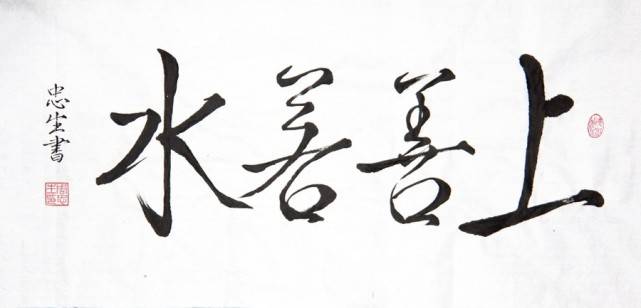 上善若水
忠生書